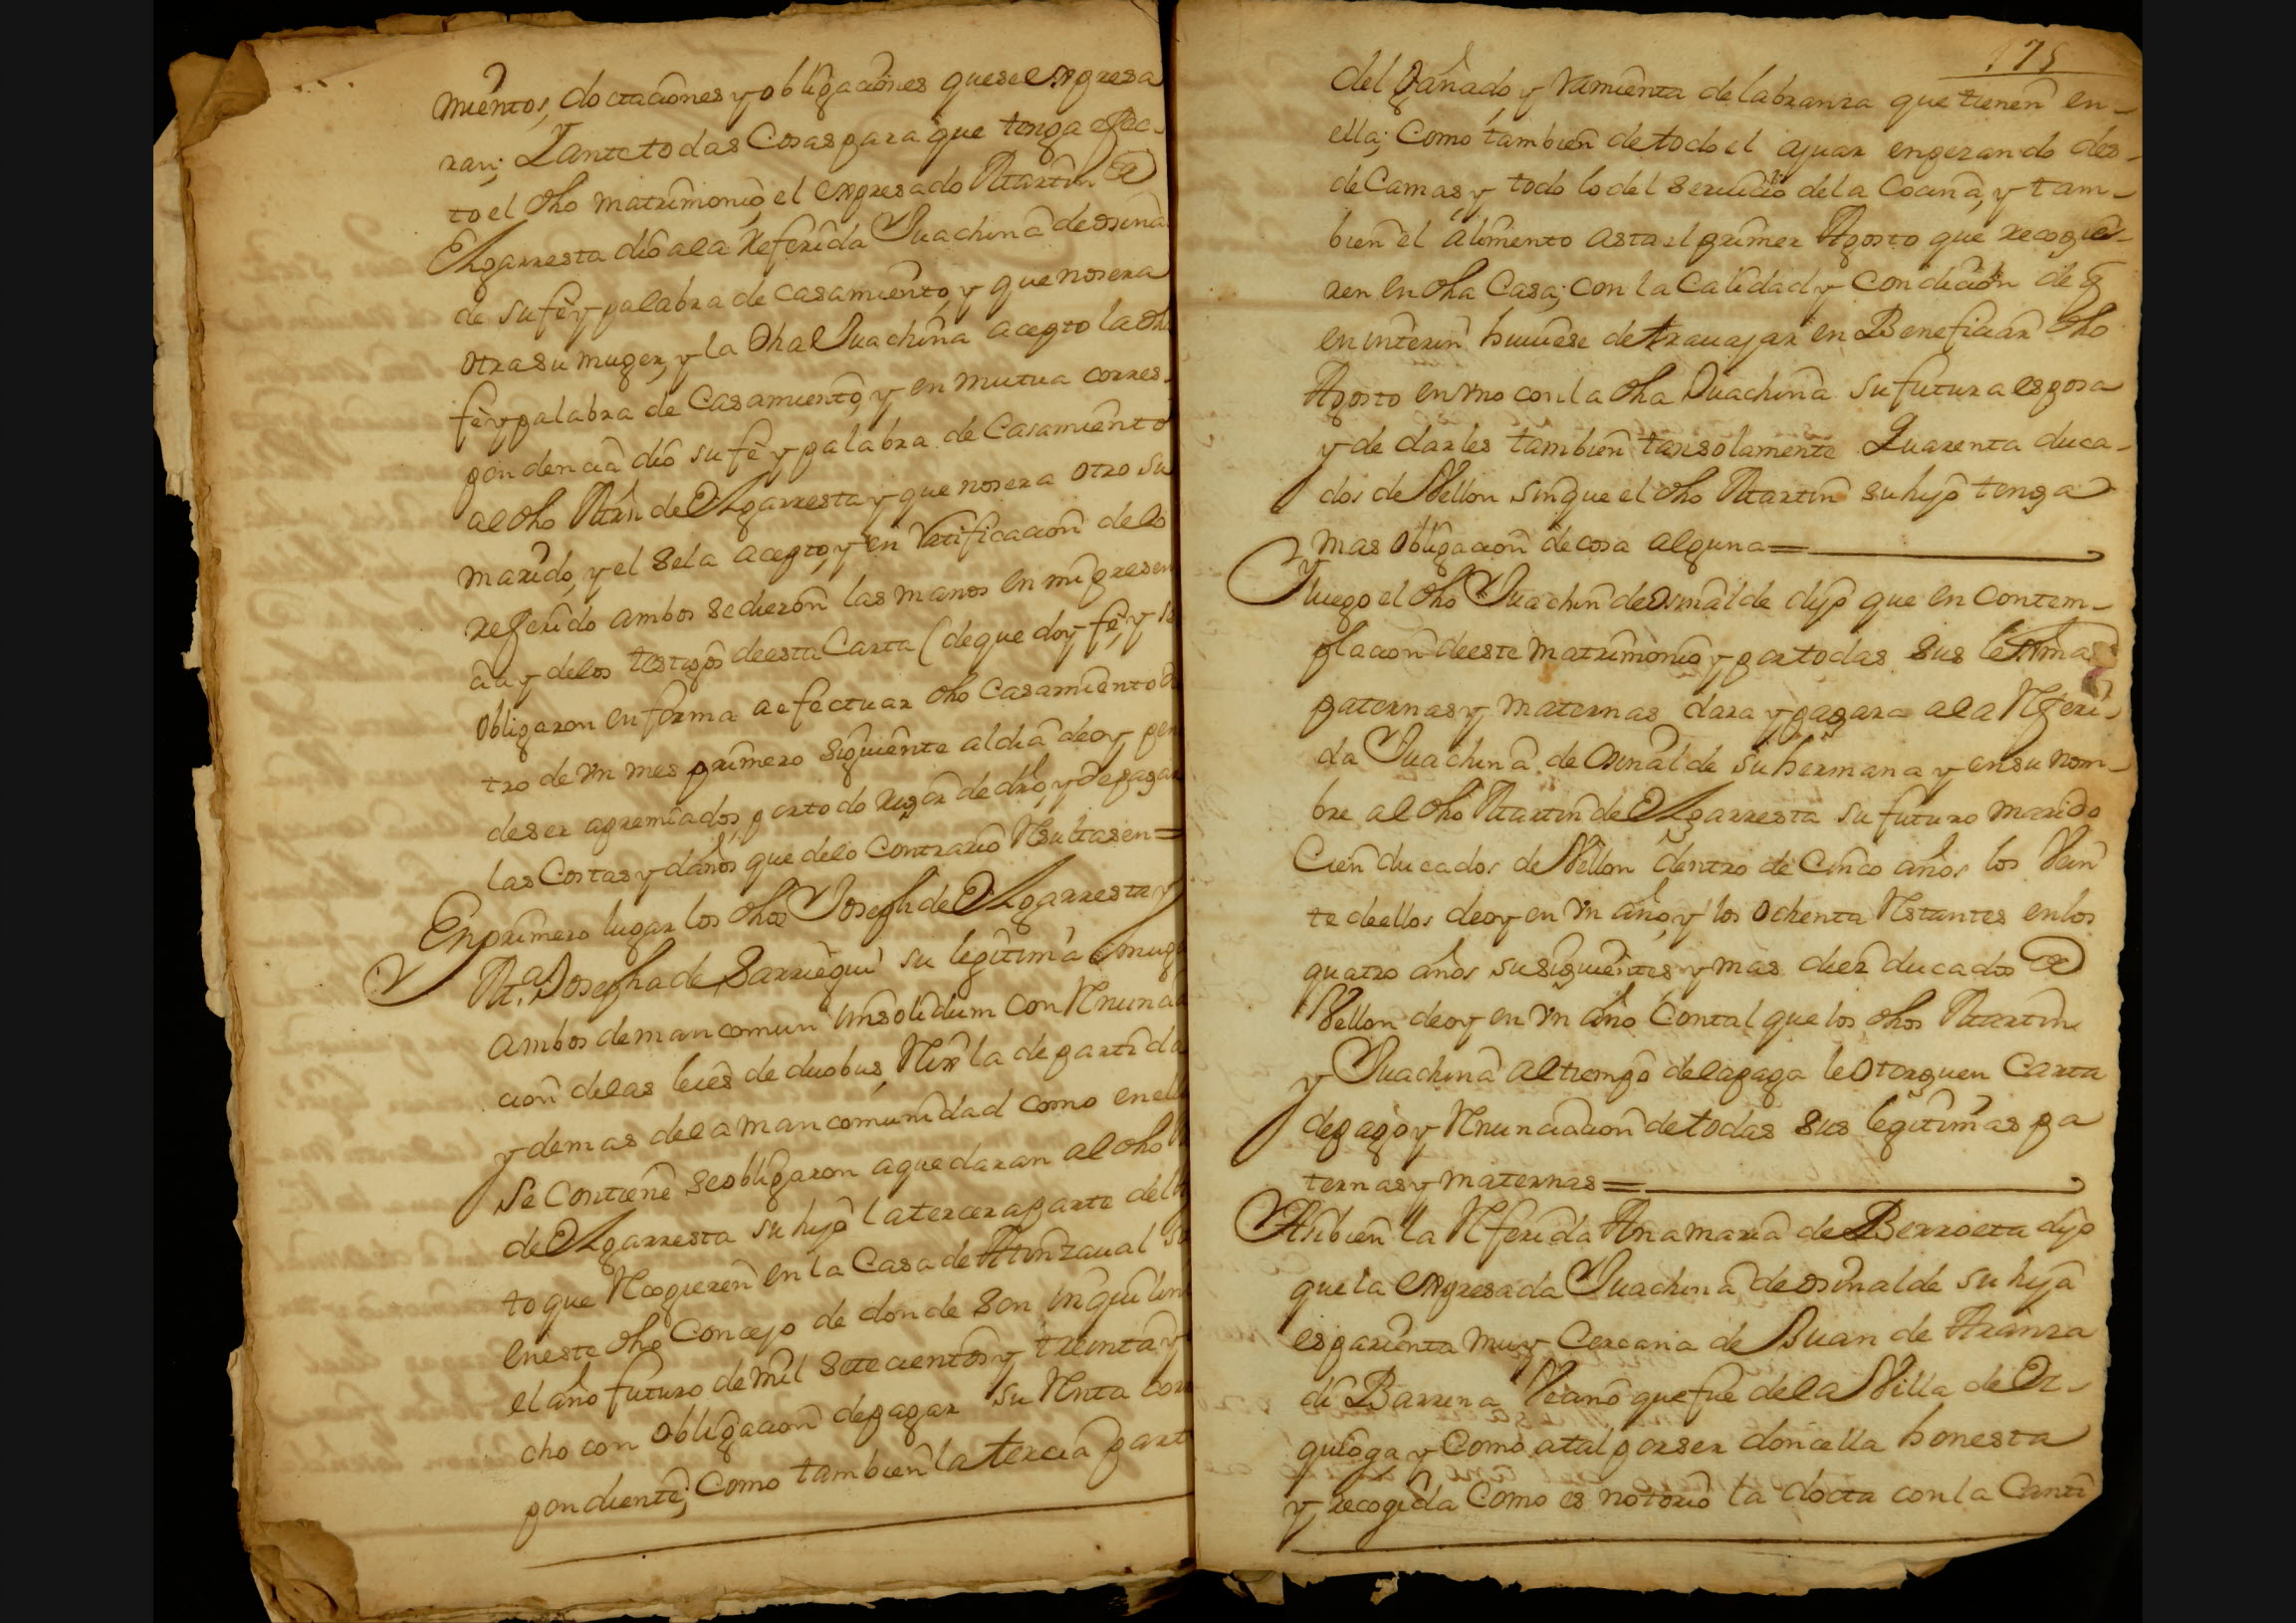 mientos, doctaciones y obligaciones que se expresa
ran; Y ante todas Cosas para que tenga efec-
to el dho matrimonio, el expresado Martin de
Elgarresta dio a la Referida Juachina de osina
de su fe y palabra de casamiento, y que no sera
otra su muger, y la dha Juachina acepto la dha
fe y palabra de Casamiento, y en mutua corres-
pondencia dio su fe y palabra de Casamiento
al dho Mrn de Elgarresta y que no sera otro su
marido, y el se la acepto, y en Ratificacion de lo
referido ambos se dieron las manos en mi presen
cia y de los testigos de esta Carta (de que doy fe, y se
obligaron en forma a efectuar dho Casamiento de
tro de vn mes primero siguiente al dia de oy pen
de ser apremiados por todo rigor de dro, y de pagar
las Costas y daños que de lo Contrario Resultasen =
En primero lugar los dhos Joseph de Elgarresta y
Ma. Josepha de Sarriegui su legitima muge
ambos de man comun insolidum con Renuncia
cion de las leies de duobus, Rex la de partida
y demas de la man comunidad como en ella
se Contiene se obligaron a que daran al dho M
de Elgarresta su hijo la tercera parte del
to que Recogieren en la Casa de Minzaual su
en este dho Concejo de donde son inquilin
el año futuro de mil setecientos y treinta y
cho con obligacion de pagar su Renta corr
pondiente; Como tambien la tercia part
175
del Ganado, y ramienta de labranza que tienen en-
ella; Como tambien de todo el ajuar enperando des-
de Camas, y todo lo del seruicio de la Cocina, y tam-
bien el alimento asta el primer Agosto que recogie-
ren en dha Casa; con la Calidad y Condicion de q
en interin huuiese de trauajar en Beneficiar dho
Agosto en vno con la dha Juachina su futura esposa
y de darles tambien tan solamente Quarenta duca-
dos de Vellon sin que el dho Martin su hijo tenga
mas obligacion de cosa alguna =
Y luego el dho Juachin de Osinalde dijo que en Contem-
placion de este matrimonio y por todas sus letimas
paternas y maternas dara y pagara a la Referi-
da Juachina de Osinalde su hermana y en su nom-
bre al dho Martin de Elgarresta su futuro marido
Cien ducados de Vellon dentro de Cinco años los Vein
te de ellos de oy en vn año, y los ochenta Restantes en los
quatro años susiguientes y mas diez ducados de
Vellon de oy en vn año Con tal que los dhos Martin
y Juachina al tiempo de la paga le otorguen Carta
de pago y Renunciacion de todas sus legitimas pa
ternas y maternas =
Asibien la Referida Ana maria de Berroeta dijo
que la expresada Juachina de osinalde su hija
es parienta muy Cercana de Juan de Aranza
di Barrena Vecino que fue de la Villa de Ez-
quioga y Como a tal por ser doncella honesta
y recogida Como es notorio la docta con la Canti